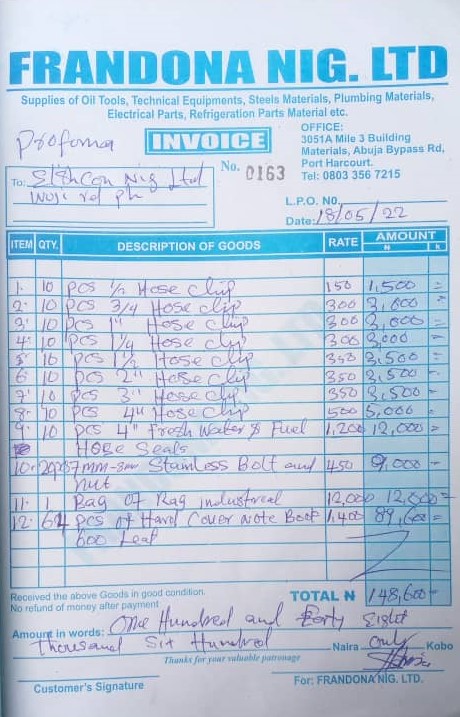 FRANDONA NIG. LTD
Supplies of Oil Tools, Technical Equipments, Steels Materials, Plumbing Materials,
Electrical Parts, Refrigeration Parts Material etc.
Profoma INVOICE
OFFICE:
3051A Mile 3 Building
Materials, Abuja Bypass Rd,
Port Harcourt.
Tel: 0803 356 7215
No. 0163
To: Nig Ltd
rd ph
L.P.O. NO.
Date: 18/05/22
ITEM QTY. DESCRIPTION OF GOODS RATE AMOUNT
N k
1. 10 pcs 1/2 Hose clip 150 1,500 =
2. 10 pcs 3/4 Hose clip 300 3,000 =
3. 10 pcs 1" Hose clip 300 3,000 =
4. 10 pcs 1 1/4 Hose clip 300 3,000 =
5. 10 pcs 1 1/2 Hose clip 350 3,500 =
6. 10 pcs 2" Hose clip 350 3,500 =
7. 10 pcs 3" Hose clip 350 3,500 =
8. 10 pcs 4" Hose clip 500 5,000 =
9. 10 pcs 4" Fresh Water & Fuel 1,200 12,000 =
Hose Seals
10. 20pcs 7mm-8mm Stainless Bolt and 450 9,000 =
nut
11. 1 Bag of Rag industreal 12,000 12,000 =
12. 64 pcs of Hard Cover Note Book 1,400 89,600 =
600 Leaf
Received the above Goods in good condition.
No refund of money after payment
TOTAL N 148,600 =
Amount in words: One Hundred and Forty Eight
Thousand Six Hundred Naira only Kobo
Thanks for your valuable patronage
Customer's Signature
For: FRANDONA NIG. LTD.